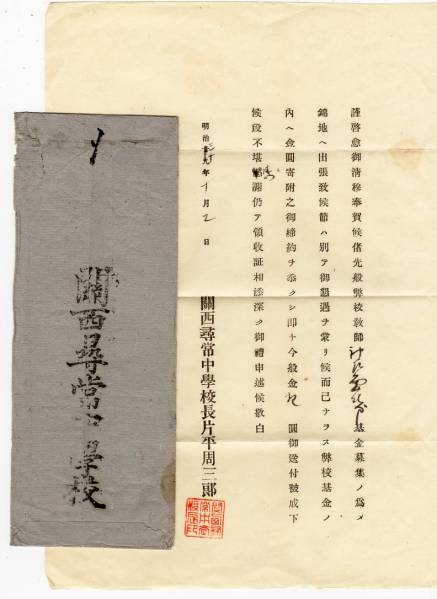 謹啓愈御清穆奉賀候偖先般弊校敎師 基金募集ノ爲メ
錦地ヘ出張致候節ハ別テ御懇遇ヲ蒙リ候而已ナラス弊校基金ノ
內ヘ金圓寄附之御締約ヲ忝クシ卽チ今般金 圓御送付被成下
候段不堪 謝仍テ領收証相添深ク御禮申述候敬白
明治廿九年 月 日
關西尋常中學校長片平周三郞
關西尋常中學校